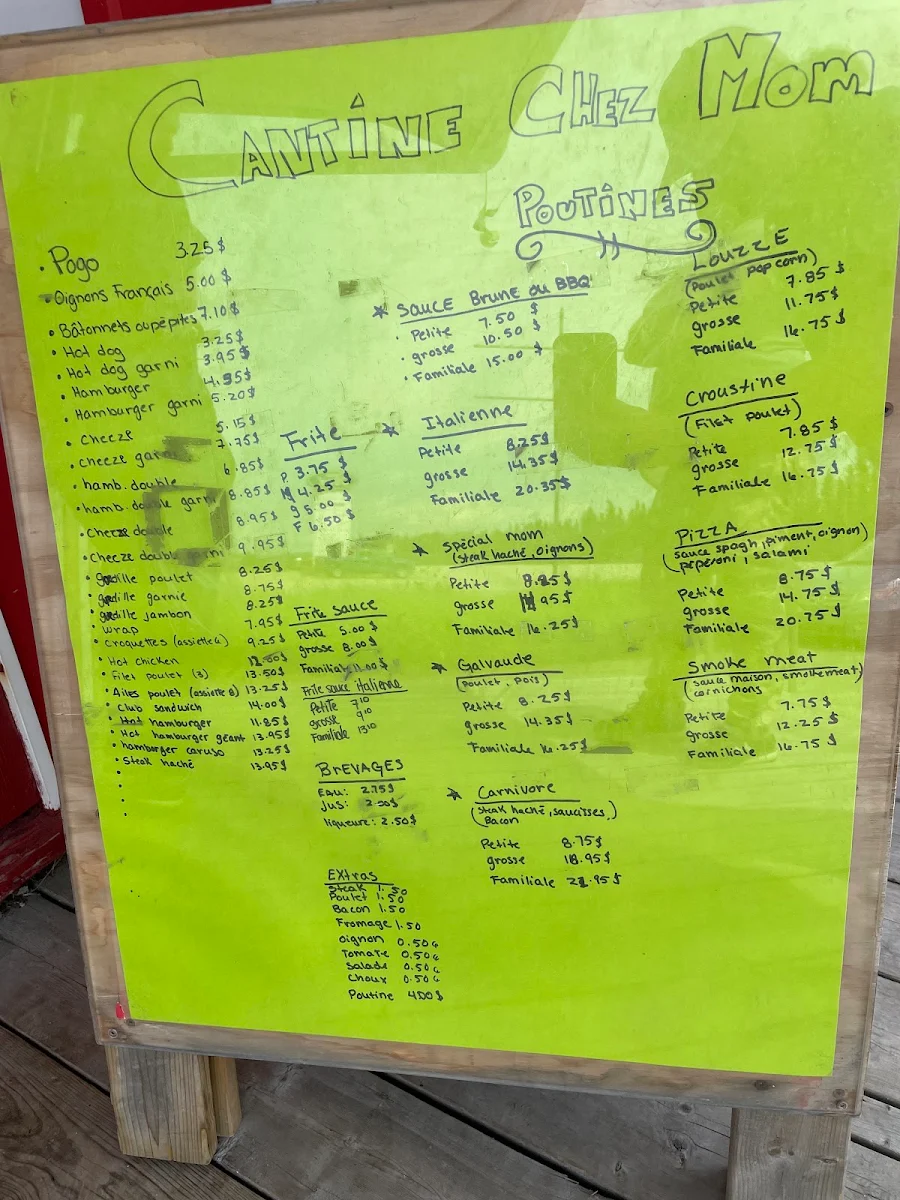 CANTINE CHEZ MOM
• Pogo 3.25 $
Oignons Français 5.00 $
• Bâtonnets ou pépites 7.10 $
• Hot dog 3.25 $
• Hot dog garni 3.95 $
• Hamburger 4.95 $
• Hamburger garni 5.20 $
• Cheeze 5.15 $
• Cheeze 7.75 $
• hamb. double 6.85 $
• hamb. double garni 8.85 $
• Cheeze double 8.95 $
• Cheeze double 9.95 $
• guedille poulet 8.25 $
• guedille garnie 8.75 $
• guedille jambon 8.25 $
• wrap 7.95 $
• croquettes (assiette 6) 9.25 $
• Hot chicken
• Filet poulet (3) 13.50 $
• Ailes poulet (assiette 8) 13.25 $
• Club sandwich 14.00 $
• Hot hamburger 11.85 $
• Hot hamburger géant 13.95 $
• hamburger caruso 13.25 $
• Steak haché 13.95 $
Frite
P 3.75 $
M 4.25 $
g 5.00 $
F 6.50 $
Frite sauce
Petite 5.00 $
grosse 8.00 $
Familiale 11.00 $
Frite sauce italienne
Petite 7.10
grosse 9.10
Familiale 13.10
BREVAGES
Eau: 2.75 $
Jus:
liqueure: 2.50 $
EXtras
Steak 1.50
Poulet 1.50
Bacon 1.50
Fromage 1.50
oignon 0.50 ¢
Tomate 0.50 ¢
Salade 0.50 ¢
Choux 0.50 ¢
Poutine 4.00 $
POUTINES
SAUCE Brune ou BBQ
• Petite 7.50 $
• grosse 10.50 $
• Familiale 15.00 $
Italienne
Petite 8.25 $
grosse 14.35 $
Familiale 20.35 $
Spécial mom
(Steak haché, oignons)
Petite 8.85 $
grosse 95 $
Familiale 16.25 $
Galvaude
(poulet, pois)
Petite 8.25 $
grosse 14.35 $
Familiale 16.25 $
Carnivore
(Steak haché, saucisses,
Bacon)
Petite 8.75 $
grosse 18.95 $
Familiale 21.95 $
LOUZZE
(Poulet Pop corn)
Petite 7.85 $
grosse 11.75 $
Familiale 16.75 $
Croustine
(Filet Poulet)
Petite 7.85 $
grosse 12.75 $
Familiale 16.75 $
PIZZA
(sauce spagh, piment, oignon)
peperoni, salami
Petite 8.75 $
grosse 14.75 $
Familiale 20.75 $
Smoke meat
(sauce maison, smoke meat)
cornichons
Petite 7.75 $
grosse 12.25 $
Familiale 16.75 $